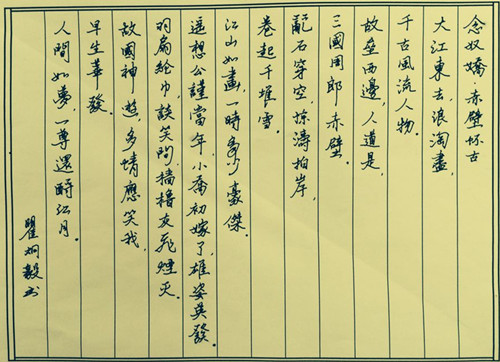 念奴嬌·赤壁怀古
大江東去，浪淘盡，
千古風流人物。
故壘西邊，人道是，
三國周郎赤壁。
亂石穿空，惊濤拍岸，
卷起千堆雪。
江山如畫，一時多少豪傑。
遥想公謹當年，小喬初嫁了，雄姿英發。
羽扇綸巾，談笑間，檣櫓灰飛煙灭。
故國神遊，多情應笑我，
早生華發。
人間如夢，一尊還酹江月。
瞿炯毅书